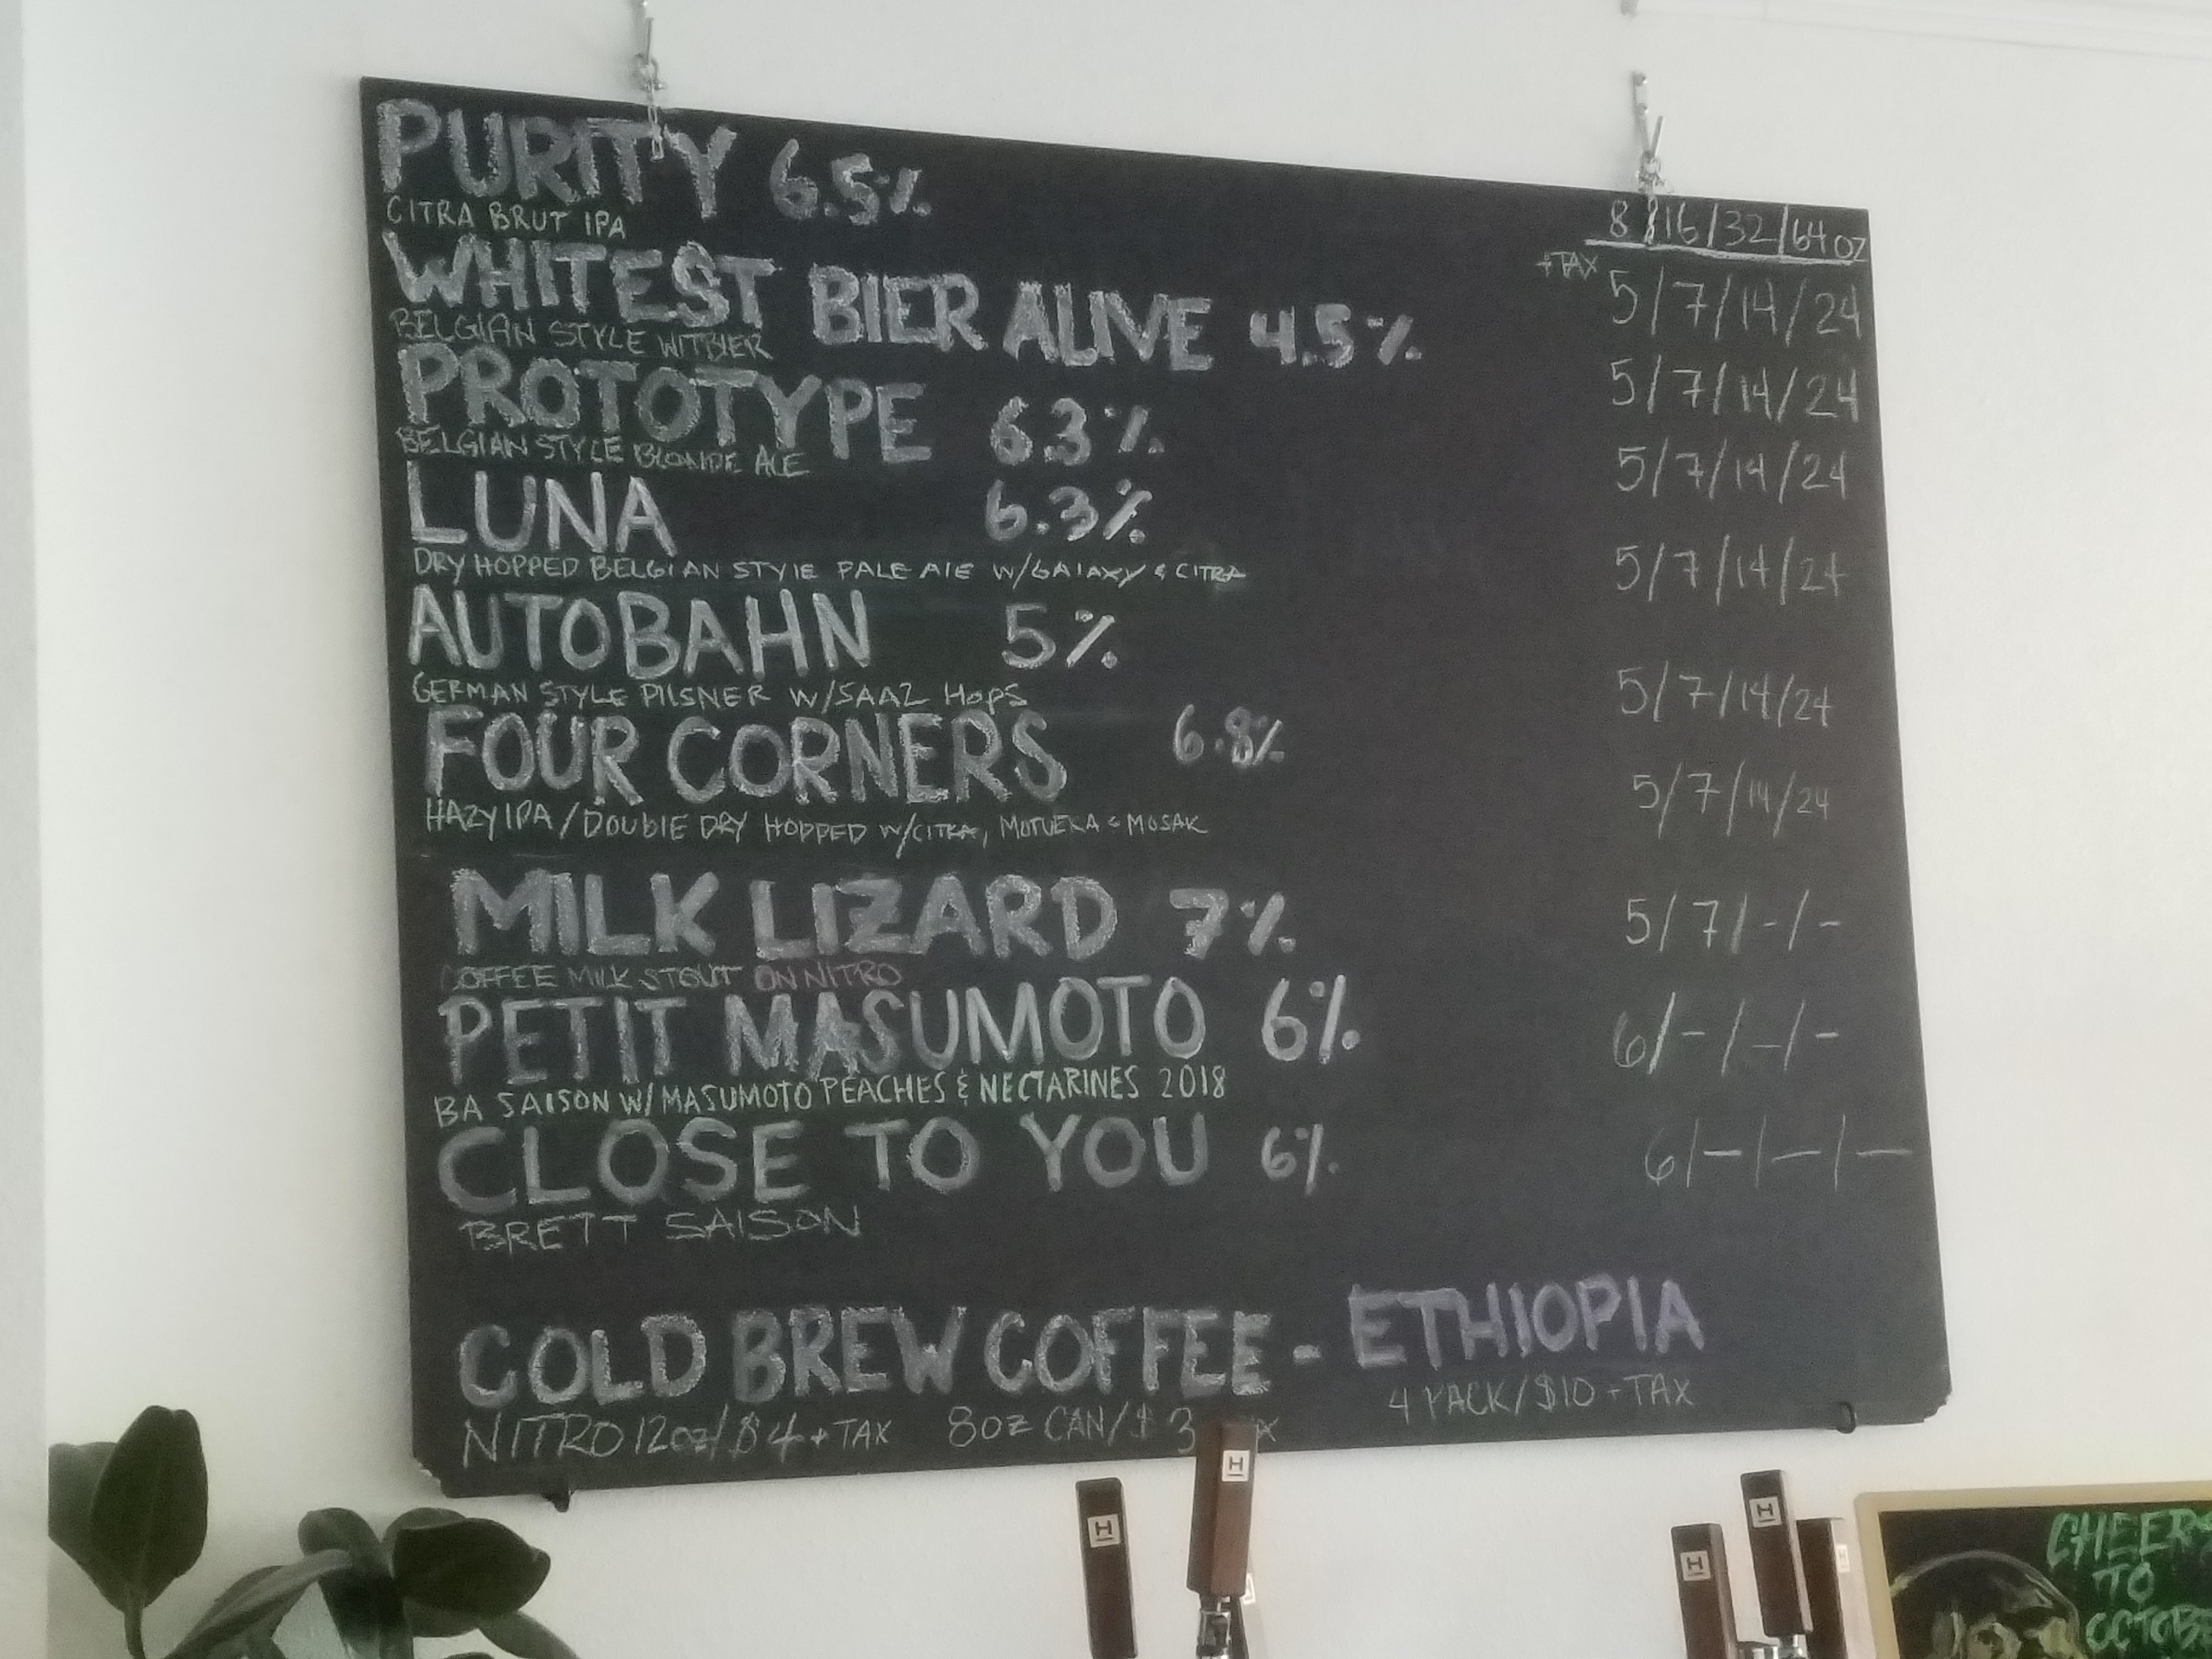 PURITY 6.5%
CITRA BRUT IPA
8/16/32/64oz
+TAX 5/7/14/24
WHITEST BIER ALIVE 4.5%
BELGIAN STYLE WITBIER
5/7/14/24
PROTOTYPE 6.3%
BELGIAN STYLE BLONDE ALE
5/7/14/24
LUNA 6.3%
DRY HOPPED BELGIAN STYLE PALE ALE W/GALAXY & CITRA
5/7/14/24
AUTOBAHN 5%
GERMAN STYLE PILSNER W/SAAZ HOPS
5/7/14/24
FOUR CORNERS 6.8%
HAZY IPA/DOUBLE DRY HOPPED W/CITRA, MOTUEKA & MOSAIC
5/7/14/24
MILK LIZARD 7%
COFFEE MILK STOUT ON NITRO
5/7/-/-
PETIT MASUMOTO 6%
BA SAISON W/ MASUMOTO PEACHES & NECTARINES 2018
6/-/-/-
CLOSE TO YOU 6%
BRETT SAISON
6/-/-/-
COLD BREW COFFEE - ETHIOPIA
NITRO 12oz/$4+TAX 8oz CAN/$3 4 PACK/$10+TAX
H
H
H
H
CHEERS
TO